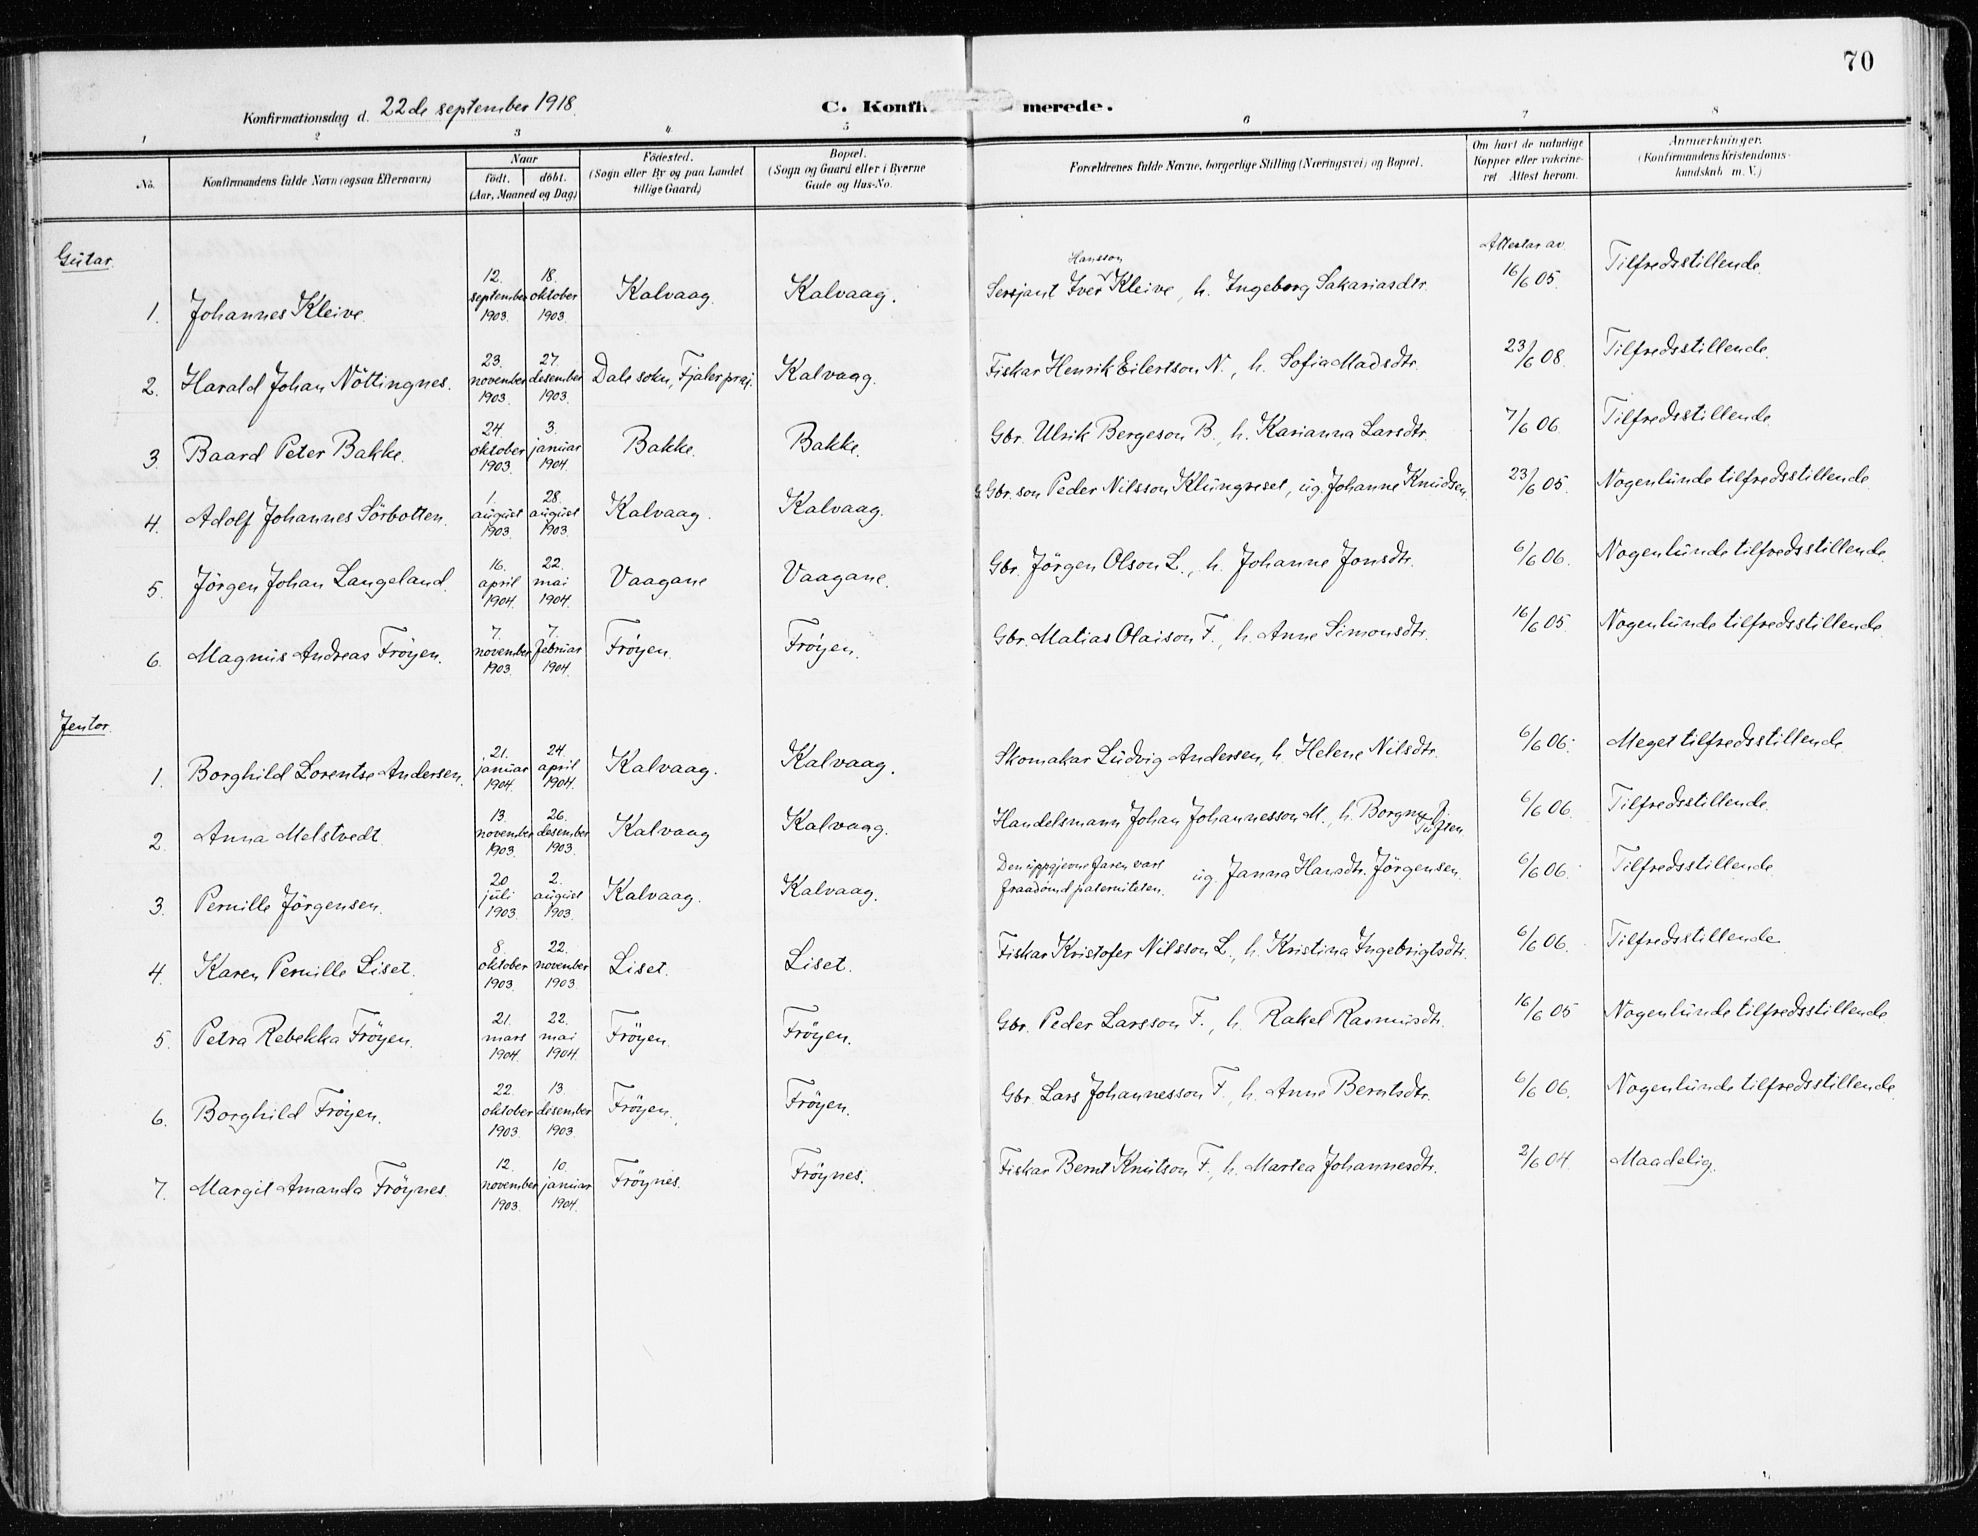 70
Konfirmationsdag d. 22de september 1918.
C. Konfirmerede.
1 2 3 4 5 6 7 8
No. Konfirmandens fulde Navn (ogsaa Efternavn) Naar født. døbt. (Aar, Maaned og Dag) Fødested. (Sogn eller By og paa Landet tillige Gaard) Bopæl. (Sogn og Gaard eller i Byerne Gade og Hus-No. Forældrenes fulde Navne, borgerlige Stilling (Næringsvei) og Bopæl. Om havt de naturlige Kopper eller vakcineret Attest herom. Anmerkninger. (Konfirmandens Kristendomskundskab m. V.)
Gutar.
Attestar av
1. Johannes Kleive. 12. september 1903. 18. oktober 1903. Kalvaag. Kalvaag. Sersjant Iver Hansson Kleive, h. Ingeborg Sakariasdtr. 16/6 05. Tilfredsstillende.
2. Harald Johan Nöttingnes. 23. november 1903. 27. desember 1903. Dale sokn, Fjaler prgj. Kalvaag. Fiskar Henrik Eilertson N., h. Sofia Madsdtr. 23/6 08. Tilfredsstillende.
3. Baard Peter Bakke. 24. oktober 1903. 3. januar 1904. Bakke. Bakke. Gbr. Ulrik Bergeson B., h. Karianna Larsdtr. 7/6 06. Tilfredsstillende.
4. Adolf Johannes Sörbotten. 1. august 1903. 28. august 1903. Kalvaag. Kalvaag. Gbr. son Peder Nilsson Klungreset, ug. Johanne Knudsen. 23/6 05. Nogenlunde tilfredsstillende.
5. Jörgen Johan Langeland. 16. april 1904. 22. mai 1904. Vaagane Vaagane. Gbr. Jörgen Olson L., h. Johanne Jonsdtr. 6/6 06. Nogenlunde tilfredsstillende.
6. Magnus Andreas Fröyen. 7. november 1903. 7. februar 1904. Fröyen. Fröyen. Gbr. Matias Olaison F., h. Anne Simonsdtr. 16/6 05. Nogenlunde tilfredsstillende.
Jentor.
1. Borghild Lorentse Andersen. 21. januar 1904. 24. april 1904. Kalvaag. Kalvaag. Skomakar Ludvig Andersen, h. Helene Nilsdtr. 6/6 06. Meget tilfredsstillende.
2. Anna Melstvedt 13. november 1903. 26. desember 1903. Kalvaag Kalvaag. Handelsmann Johan Johannesson M., h. Borgny Tuften 6/6 06. Tilfredsstillende.
3. Pernille Jörgensen. 20. juli 1903. 2. august 1903. Kalvaag. Kalvaag. Den uppgjevne faren vart fraadömd paterniteten. ug. Janna Hansdtr. Jörgensen. 6/6 06. Tilfredsstillende.
4. Karen Pernille Liset. 8. oktober 1903. 22. november 1903. Liset. Liset. Fiskar Kristofer Nilsson L., h. Kristina Ingebrigtsdtr. 6/6 06. Tilfredsstillende
5. Petra Rebekka Fröyen. 21. mars 1904. 22. mai 1904. Fröyen. Fröyen. Gbr. Peder Larsson F., h. Rakel Rasmusdtr. 16/6 05 Nogenlunde tilfredsstillende
6. Borghild Fröyen. 22. oktober 1903. 13. desember 1903. Fröyen. Fröyen. Gbr. Lars Johannesson F., h. Anne Berntsdtr. 6/6 06. Nogenlunde tilfredsstillende.
7. Margit Amanda Fröynes. 12. november 1903. 10. januar 1904. Fröynes. Fröynes. Fiskar Bernt Knutson F., h. Martea Johannesdtr. 2/6 04. Maadelig.